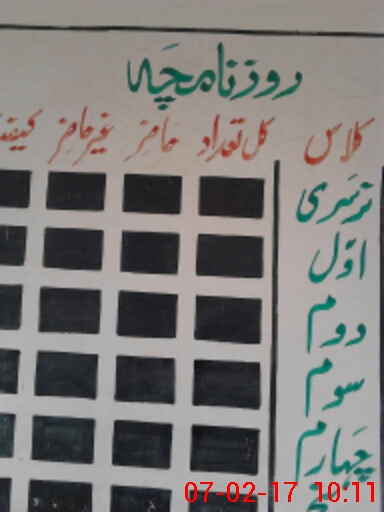 روزنامچہ
کلاس کل تعداد حاضر غیر حاضر
نرسری
اوّل
دوم
سوم
چہارم
07-02-17 10:11